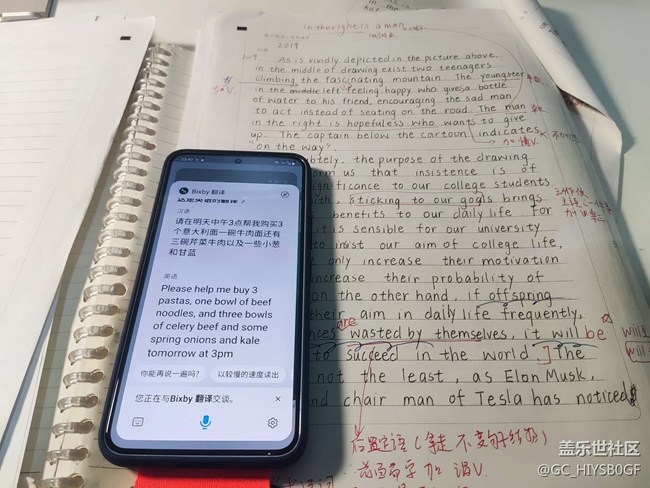 in the right is a man
2019
As is vividly depicted in the picture above,
in the middle of drawing exist two teenagers
climbing the fascinating mountain. The youngster
in the middle left feeling happy who gives a bottle
of water to his friend, encouraging the sad man
to act instead of seating on the road. The man
in the right is hopeless who wants to give
up. The captain below the cartoon indicates
"on the way".
tely, the purpose of the drawing
orm us that insistence is of
gnificance to our college students
th, sticking to our goals brings
benefits to our daily life for
it is sensible for our university
to insist our aim of college life,
only increase their motivation
increase their probability of
on the other hand, if offspring
their aim in daily life frequently,
nces are wasted by themselves, it will be
to succeed in the world. The
not the least, as Elon Musk,
nd chair man of Tesla has noticed
后置定语
Bixby 翻译
这是英语的翻译
汉语
请在明天中午3点帮我购买3
个意大利面一碗牛肉面还有
三碗芹菜牛肉以及一些小葱
和甘蓝
英语
Please help me buy 3
pastas, one bowl of beef
noodles, and three bowls
of celery beef and some
spring onions and kale
tomorrow at 3pm
你能再说一遍吗?
以较慢的速度读出
您正在与Bixby 翻译交谈。
盖乐世社区
@GC_HIYSB0GF